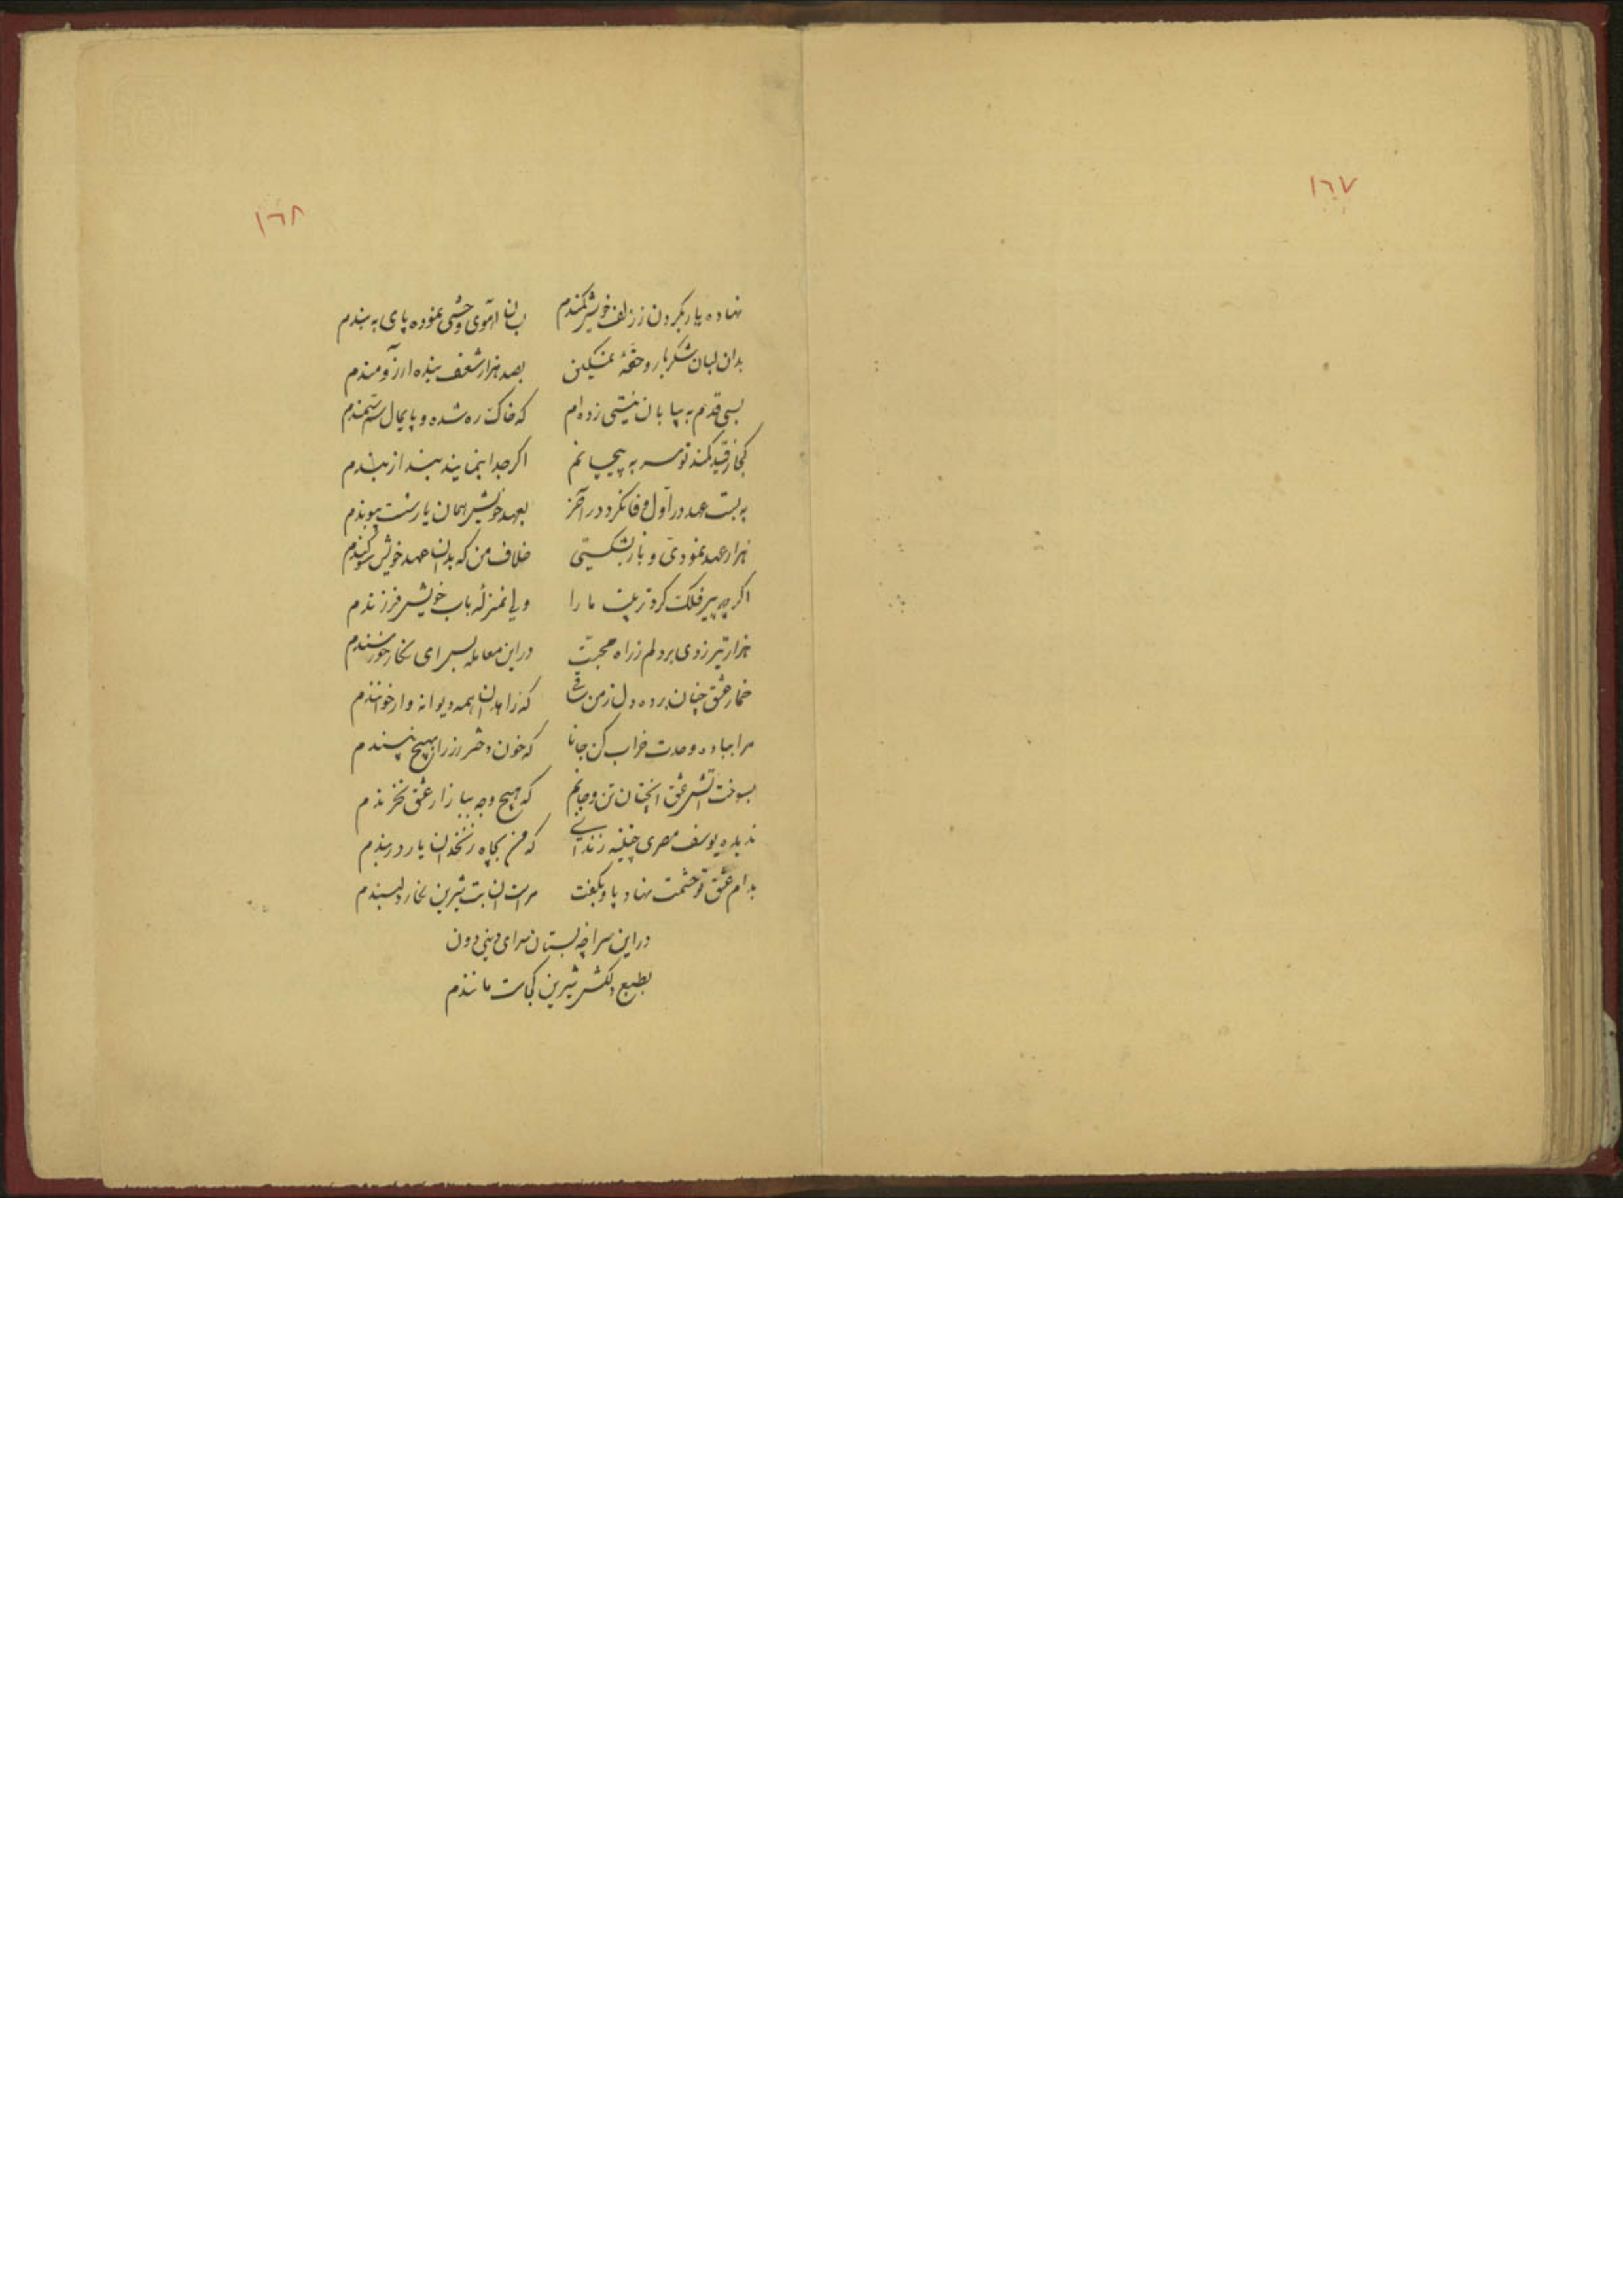 ١٦٧
١٦٨
نهاده یار بگردن ززلف خویش کمندم بسان آهوی وحشی نموده پای به بندم
بدان لبان شکربار و حقهٔ نمکین بصد هزار شغف بنده آرزومندم
بسی قدم به بیابان نیستی زده‌ام که خاک ره شده و پایمال سم سمندم
کجا ز قید کمند تو سر به پیچانم اگر جدا بنمایند بند از بندم
به بست عهد در اول وفا نکرد در آخر بعهد خویش همان یار سست پیوندم
هزار عهد نمودی و باز بشکستی خلاف من که بدان عهد خویش سوگندم
اگرچه پیر فلک کرد تربیت ما را ولی نمنزلهٔ باب خویش فرزندم
هزار تیر زدی بر دلم ز راه محبت در این معامله بس ای نگار خورسندم
خمار عشق چنان برده دل ز من ساقی که زاهدان همه دیوانه وار خوانندم
مرا بباده وحدت خراب کن جانا که خون دختر رز را بهیچ نپسندم
بسوخت آتش عشق آنچنان تن و جانم که هیچ وجه ببازار عشق نخرندم
ندیده یوسف مصری چنین زندانی که من بچاه زنخدان یار دربندم
بدام عشق تو حشمت نهاد پا و بگفت مراست آن بت شیرین نگار دلبندم
در این سراچه بستان سرای دنیی دون
بطبع دلکش شیرین کجاست مانندم